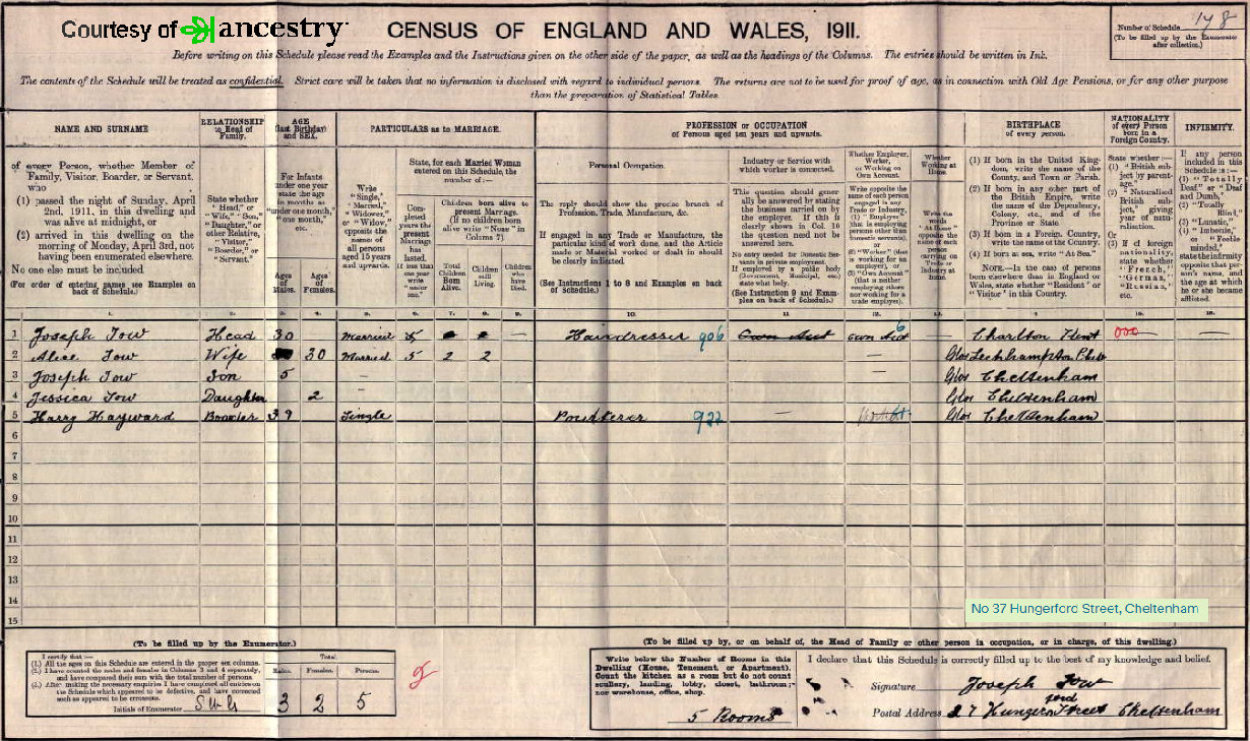 Courtesy of ancestry
CENSUS OF ENGLAND AND WALES, 1911.
Number of Schedule 148
(To be filled up by the Enumerator
after collection.)
Before writing on this Schedule please read the Examples and the Instructions given on the other side of the paper, as well as the headings of the Columns. The entries should be written in Ink.
The contents of the Schedule will be treated as confidential. Strict care will be taken that no information is disclosed with regard to individual persons. The returns are not to be used for proof of age, as in connection with Old Age Pensions, or for any other purpose
than the preparation of Statistical Tables.
NAME AND SURNAME
RELATIONSHIP
to Head of
Family.
AGE
(last Birthday)
and SEX.
PARTICULARS as to MARRIAGE.
PROFESSION or OCCUPATION
of Persons aged ten years and upwards.
BIRTHPLACE
of every person.
NATIONALITY
of every Person
born in a
Foreign Country.
INFIRMITY.
of every Person, whether Member of
Family, Visitor, Boarder, or Servant,
who
(1) passed the night of Sunday, April
2nd, 1911, in this dwelling and
was alive at midnight, or
(2) arrived in this dwelling on the
morning of Monday, April 3rd, not
having been enumerated elsewhere.
No one else must be included
(For order of entering names see Examples on
back of Schedule.)
State whether
"Head," or
"Wife," "Son,"
"Daughter," or
other Relative,
"Visitor,"
"Boarder," or
"Servant."
For Infants
under one year
state the age
in months as
"under one month,"
"one month,"
etc.
Ages
of
Males.
Ages
of
Females.
Write
"Single,"
"Married,"
"Widower,"
or "Widow,"
opposite the
names of
all persons
aged 15 years
and upwards.
State, for each Married Woman
entered on this Schedule, the
number of:—
Completed
years the
present
Marriage
has
lasted.
If less than
one year
write
"under
one."
Children born alive to
present Marriage.
(If no children born
alive write "None" in
Column 7)
Total
Children
Born
Alive.
Children
still
Living.
Children
who
have
Died.
Personal Occupation.
The reply should show the precise branch of
Profession, Trade, Manufacture, &c.
If engaged in any Trade or Manufacture, the
particular kind of work done, and the Article
made or Material worked or dealt in should
be clearly indicated
(See Instructions 1 to 8 and Examples on back
of Schedule.)
Industry or Service with
which worker is connected.
This question should gener-
ally be answered by stating
the business carried on by
the employer. If this is
clearly shown in Col. 10
the question need not be
answered here.
No entry needed for Domestic Ser-
vants in private employment.
If employed by a public body
(Government, Municipal, etc.)
state what body.
(See Instruction 9 and Exam-
ples on back of Schedule.)
Whether Employer,
Worker,
or Working on
Own Account.
Write opposite the
name of each person
engaged in any
Trade or Industry,
(1) "Employer"
(that is employing
persons other than
domestic servants),
or
(2) "Worker" (that
is working for an
employer), or
(3) "Own Account"
(that is neither
employing others
nor working for a
trade employer).
Whether
Working at
Home.
Write the
words
"At Home"
opposite the
name of each
person
carrying on
Trade or
Industry at
home.
(1) If born in the United King-
dom, write the name of the
County, and Town or Parish.
(2) If born in any other part of
the British Empire, write
the name of the Dependency,
Colony, etc., and of the
Province or State
(3) If born in a Foreign Country,
write the name of the Country.
(4) If born at sea, write "At Sea."
NOTE.—In the case of persons
born elsewhere than in England or
Wales, state whether "Resident" or
"Visitor" in this Country.
State whether:—
(1) "British sub-
ject by parent-
age."
(2) "Naturalised
British sub-
ject," giving
year of natu-
ralisation.
Or
(3) If of foreign
nationality,
state whether
"French,"
"German,"
"Russian,"
etc.
If any person
included in this
Schedule is:—
(1) "Totally
Deaf" or "Deaf
and Dumb,"
(2) "Totally
Blind,"
(3) "Lunatic,"
(4) "Imbecile,"
or "Feeble-
minded,"
state the infirmity
opposite that per-
son's name, and
the age at which
he or she became
afflicted.
1 Joseph Tow Head 30 Married 5 — Hairdresser 906 Own Act own Act 6 — Charlton Kent 000
2 Alice Tow Wife 30 Married 5 2 2 — Glos Leckhampton
3 Joseph Tow Son 5 — Glos Cheltenham
4 Jessica Tow Daughter 2 Glos Cheltenham
5 Harry Hayward Boarder 39 Single Poulterer 922 — Glos Cheltenham
6
7
8
9
10
11
12
13
14
15
No 37 Hungerford Street, Cheltenham
(To be filled up by the Enumerator.)
I certify that:—
(1.) All the ages on this Schedule are entered in the proper sex columns.
(2.) I have counted the males and females in Columns 3 and 4 separately,
and have compared their sum with the total number of persons
(3.) After making the necessary enquiries I have completed all entries on
the Schedule which appeared to be defective, and have corrected
such as appeared to be erroneous.
Initials of Enumerator
Total.
Males. Females. Persons.
3 2 5
(To be filled up by, or on behalf of, the Head of Family or other person in occupation, or in charge, of this dwelling.)
Write below the Number of Rooms in this
Dwelling (House, Tenement, or Apartment).
Count the kitchen as a room but do not count
scullary, landing, lobby, closet, bathroom;
nor warehouse, office, shop.
5 Rooms
I declare that this Schedule is correctly filled up to the best of my knowledge and belief.
Signature Joseph Tow
Postal Address 37 Hungerford Street Cheltenham